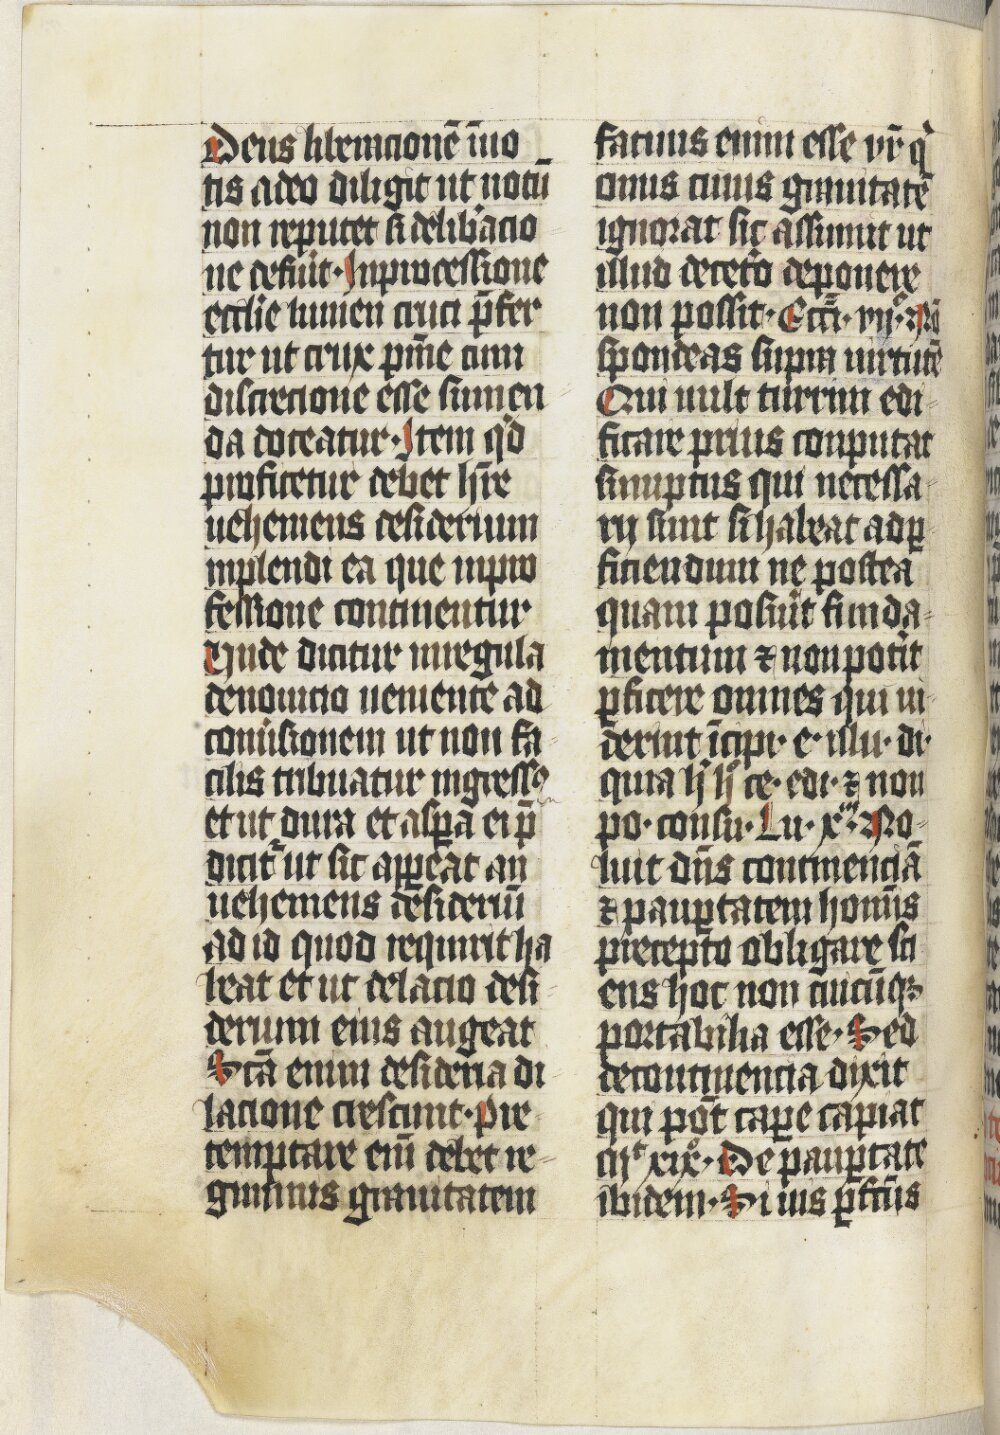 Deus liberacionē ī uo
tis adeo diligit ut notū
non reputet si delib̾acio
ne cefuīt · In processione
ecclie lumen cruci p̄fer
tur ut crux pm̄e cum
discrecione esse sumen
da doceatur · Item q̄d
proficetur debet hr̄e
uehemens desiderium
inplendi ea que in pro
fessione continentur
Unde dicitur in regula
de nouicio ueniente ad
conūsionem ut non fa
cilis tribuatur ingressꝰ
et ut dura et asp̄a ei p̄
dicit̄ ut sic appeat an
uehemens dēsideriū
ad id quod requirit ha
beat et ut delacio desi
derium eius augeat
Scā enim desideria di
lacione crescunt · Pre
temptare enī debet re
giminis grauitatem
facimus enim esse vr̄ q̾
onus cuius grauitatē
ignorat sic assumit ut
illud deceto deponere
non possit · Ecci · vij · No
spondeas supra uirtutē
Qui uult turrim edi
ficare prius conputat
sumptus qui necessa
rij sunt si habeat ad ꝑ
ficiendum ne postea
quam posuīt funda
mentum ⁊ non potīt
ꝑficere omnes qui ui
derint īcipi · e · illu · di ·
quia h̾ h° ce · edi · ⁊ non
po · consu · Lu · x · No
luit dn̄s continenciā
⁊ pauꝑtatem homīs
precepto obligare sci
ens hoc non cuicūqꝫ
portabilia esse · Sed
de continencia dixit
qui pot̄ capere capiat
xix° · De pauꝑtate
ibidem · Si uis ꝑfcūs